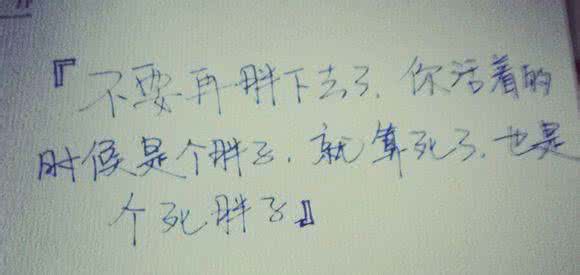 『不要再胖下去了.你活着的
时候是个胖子.就算死了.也是
个死胖子』